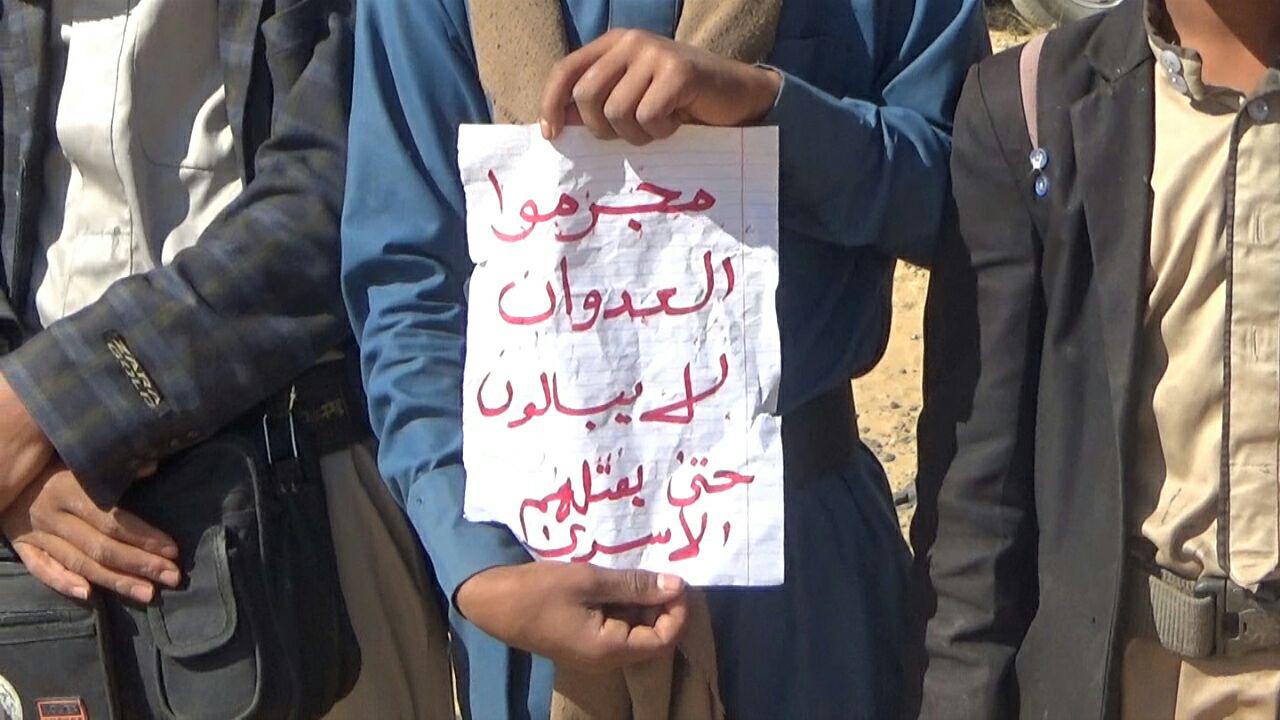 مجرموا
العدوان
لا يبالون
حتى بقتلهم
الاسرى
ZARA